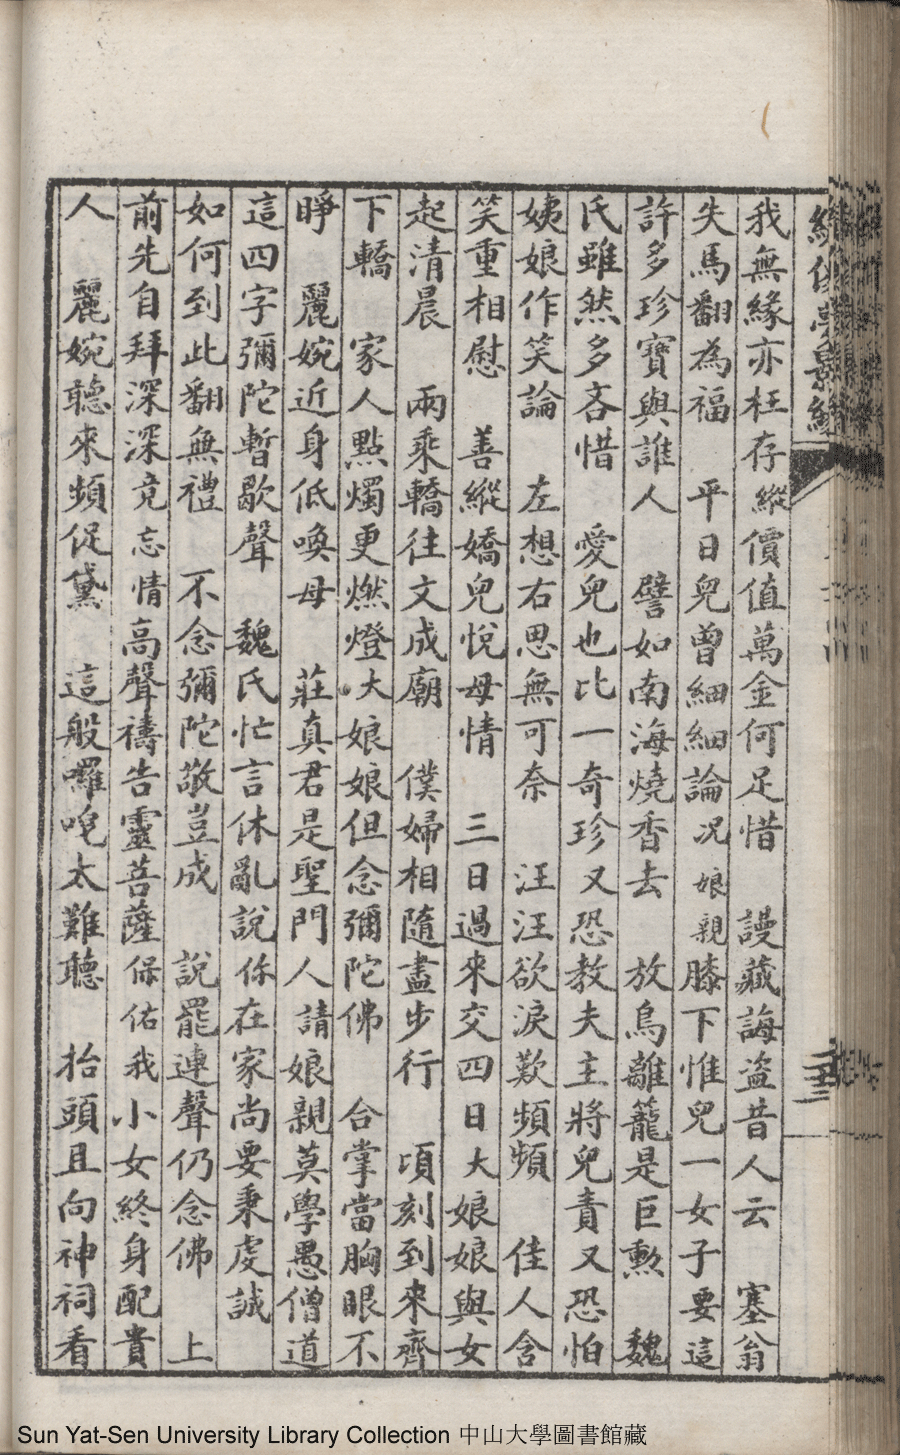 我無緣亦枉存縱價值萬金何足惜 謾藏誨盜昔人云 塞翁
失馬翻為福 平日兒曾細細論况娘親膝下惟兒一女子要這
許多珍寶與誰人 譬如南海燒香去 放鳥離籠是巨勲 魏
氏雖然多吝惜 愛兒也比一奇珍又恐教夫主將兒責又恐怕
姨娘作笑論 左想右思無可奈 汪汪欲淚歎頻頻 佳人含
笑重相慰 善縱嬌兒悅母情 三日過來交四日大娘娘與女
起清晨 兩乘轎往文成廟 僕婦相隨盡步行 頃刻到來齊
下轎 家人點燭更燃燈大娘娘但念彌陀佛 合掌當胸眼不
睜 麗婉近身低喚母 莊真君是聖門人請娘親莫學愚僧道
這四字彌陀暫歇聲 魏氏忙言休亂說你在家尚要秉虔誠
如何到此翻無禮 不念彌陀敬豈成 說罷連聲仍念佛 上
前先自拜深深竟忘情高聲禱告靈菩薩保佑我小女終身配貴
人 麗婉聽來頻促黛 這般囉唣太難聽 抬頭且向神祠看
Sun Yat-Sen University Library Collection 中山大學圖書館藏